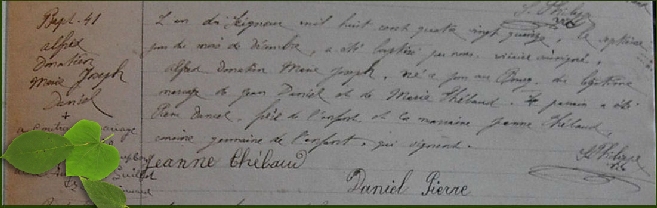 Bapt. 41
Alfred
Donatien
Marie Joseph
Daniel
+
a contracté mariage
L'an du Seigneur mil huit cent quatre vingt quinze, le septième
jour du mois de décembre, a été baptisé par nous, vicaire soussigné,
Alfred Donatien Marie Joseph, né ce jour au Bourg, du légitime
mariage de Jean Daniel et de Marie Thébaud. Le parrain a été
Pierre Daniel, frère de l'enfant et la marraine Jeanne Thébaud,
cousine germaine de l'enfant, qui signent.
Jeanne Thébaud
Daniel Pierre